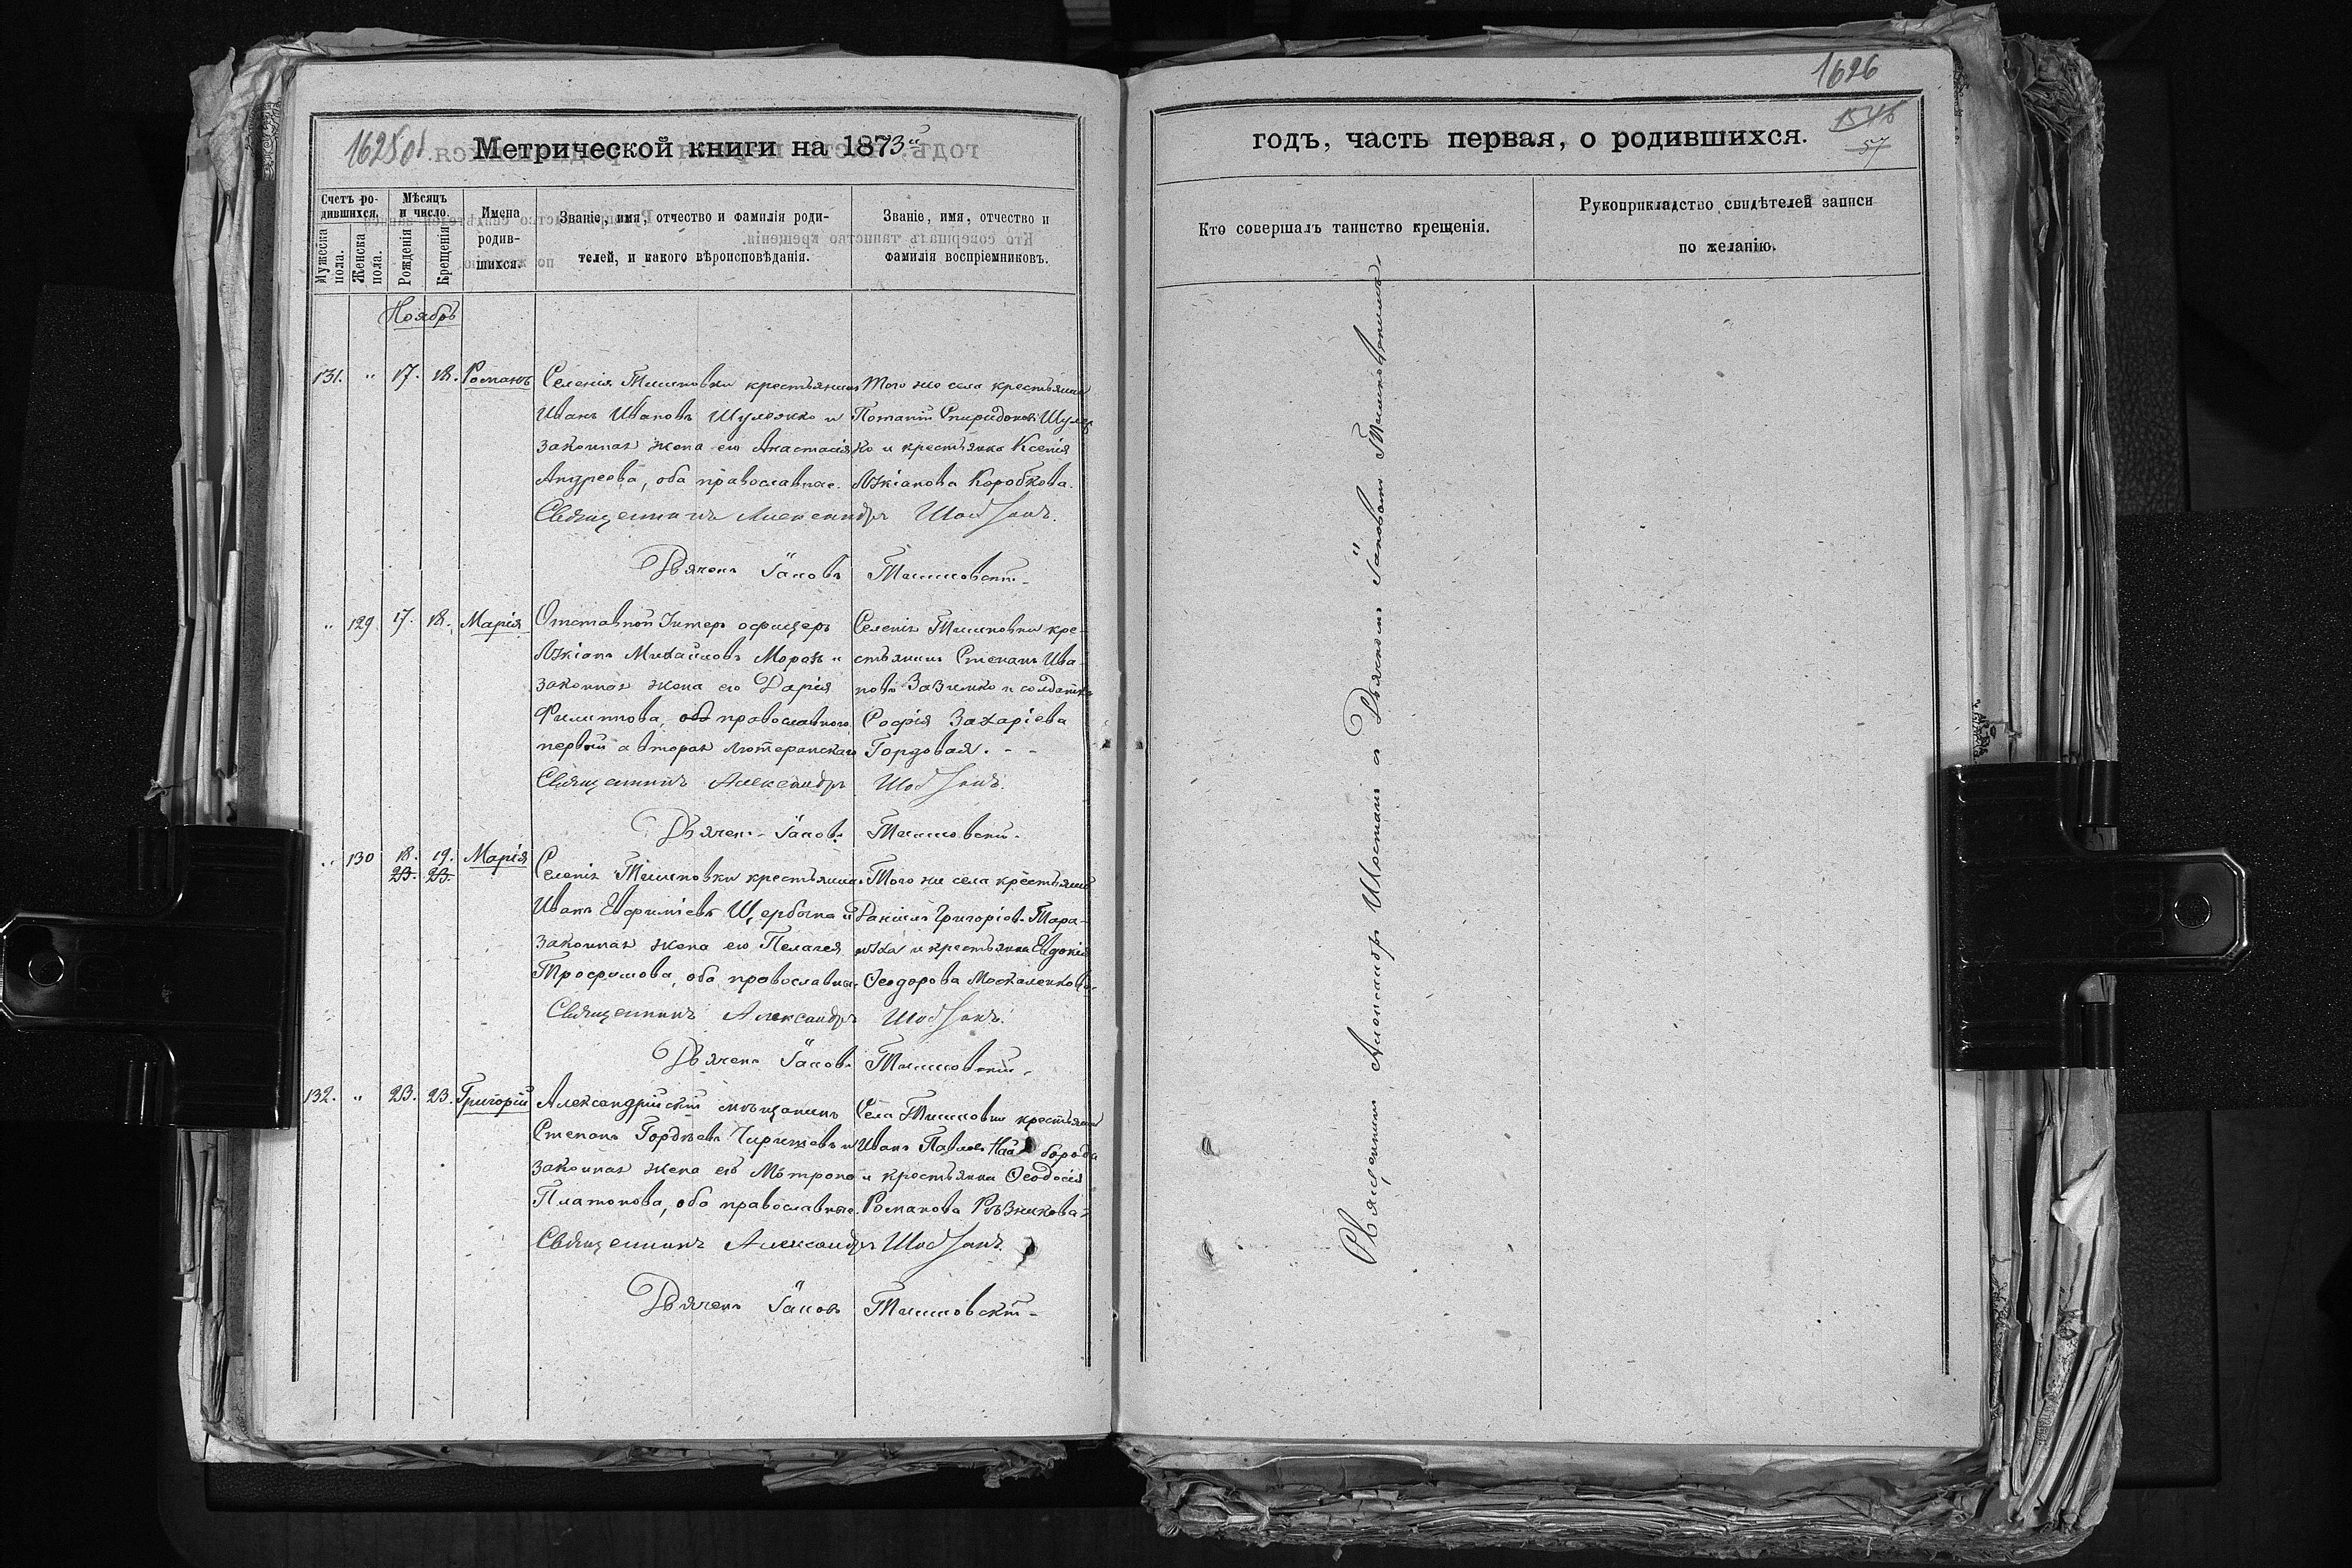 1625 об
Метрической книги на 1873й
Счетъ родившихся.
Мужеска пола.
Женска пола.
Мѣсяцъ и число.
Рожденія
Крещенія
Имена
родив-
шихся.
Званіе, имя, отчество и фамилія роди-
телей, и какого вѣроисповѣданія.
Званіе, имя, отчество и
фамилія воспріемниковъ.
Ноябрь
131. " 17. 18. Романъ
Селенія Тишковки крестьянинъ
Иванъ Ивановъ Шуляжко и
законная жена его Анастасія
Андреева, оба православные.
Того же села крестьянинъ
Потапій Спиридоновъ Шуляж
ко и крестьянка Ксенія
Лукіанова Коробкова.
Священникъ Александръ
Дьячекъ Іаковъ Тишковскій
" 129 17. 18. Марія
Отставной Унтеръ офицеръ
Лукіанъ Михайловъ Морозъ и
законная жена его Дарія
Филиппова, православнаго
первый а вторая лютеранскаго
Селенія Тишковки кре-
стьянинъ Степанъ Ива-
новъ Зазимко и солдатка
Софія Захаріева
Гордовая.
Священникъ Александръ
Дьячекъ Іаковъ Тишковскій
" 130 18. 19. Марія
23. 23.
Селенія Тишковки крестьянинъ
Иванъ Евфиміевъ Щербина и
законная жена его Пелагея
Трофимова, оба православные
Того же села крестьянинъ
Даніилъ Григоріевъ Тара-
нуха и крестьянка Евдокія
Ѳеодорова Москаленкова
Священникъ Александръ
Дьячекъ Іаковъ Тишковскій
132. " 23. 23. Григорій
Александрійскій мѣщанинъ
Степанъ Гордѣевъ и
законная жена его Матрона
Платонова, оба православные.
Села Тишковки крестьянинъ
Иванъ Павловъ борода
и крестьянка Ѳеодосія
Романова Рѣзникова
Священникъ Александръ
Дьячекъ Іаковъ Тишковскій
1626
1546
57
годъ, часть первая, о родившихся.
Кто совершалъ таинство крещенія.
Рукоприкладство свидѣтелей записи
по желанію.
Священникъ Александръ съ Дьячкомъ Іаковомъ Тишковскимъ